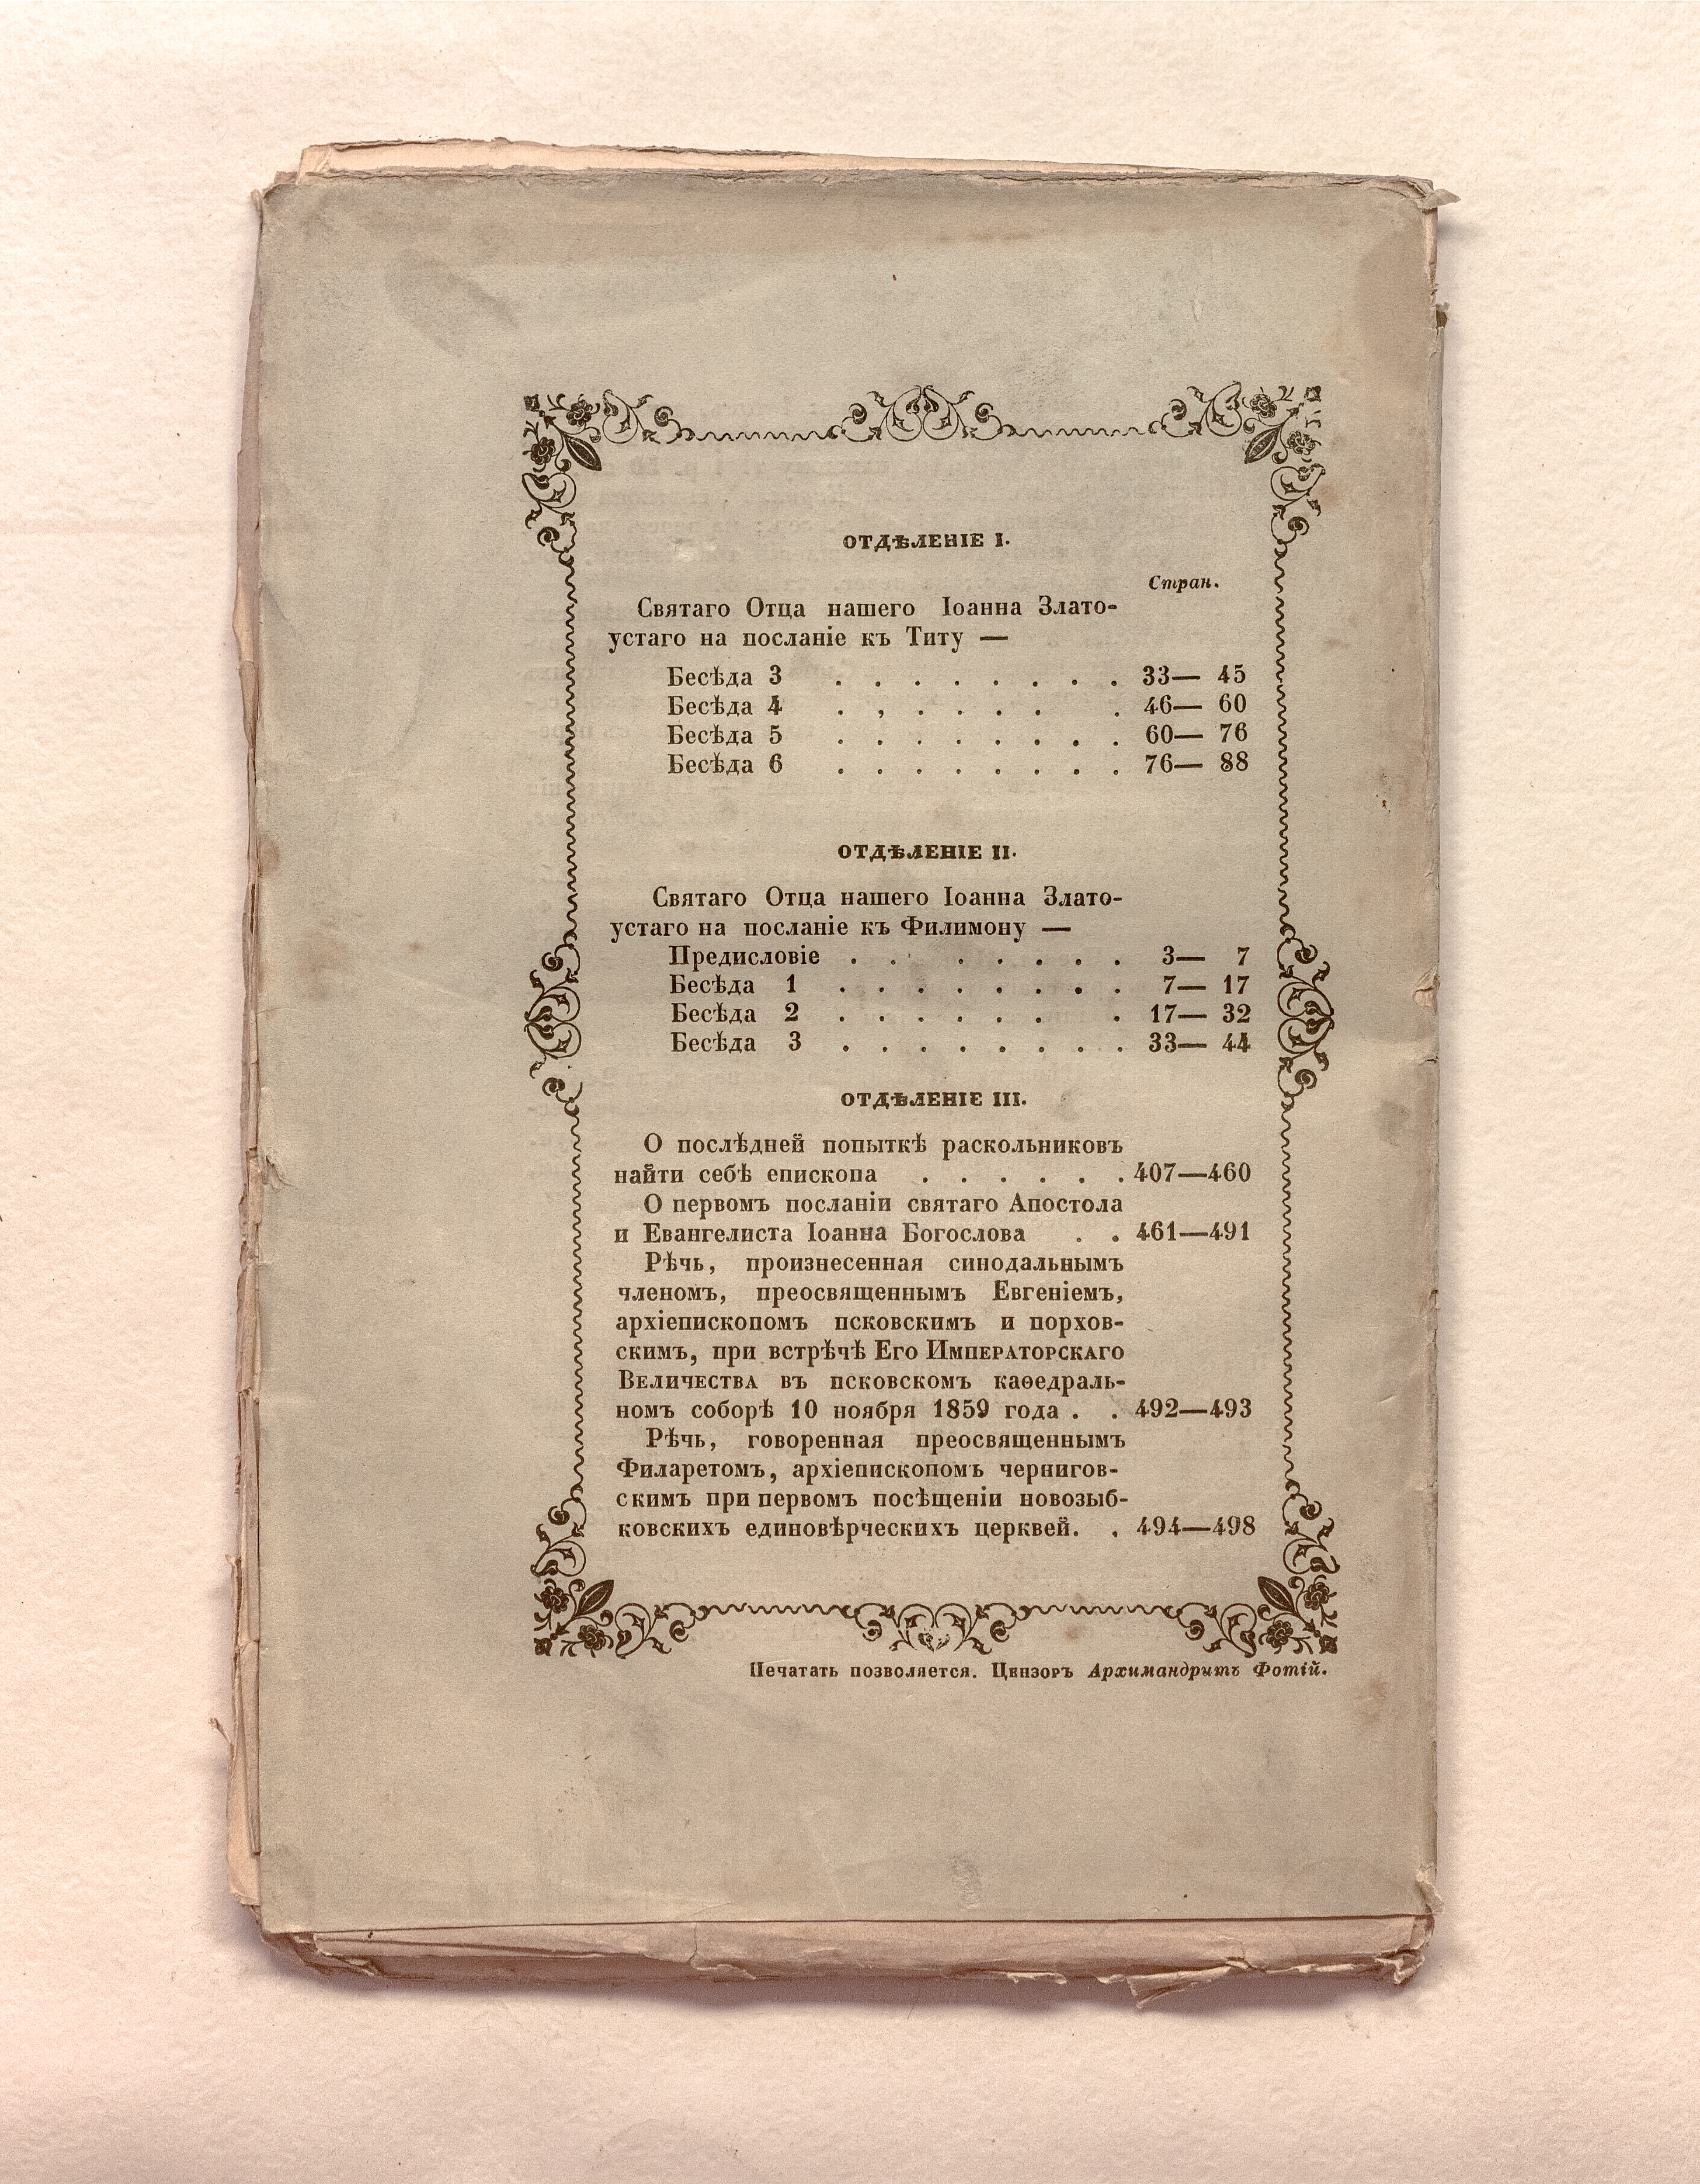 ОТДѢЛЕНІЕ I.
Стран.
Святаго Отца нашего Іоанна Злато-
устаго на посланіе къ Титу —
Бесѣда 3 . . . . . . . . 33— 45
Бесѣда 4 . , . . . . . 46— 60
Бесѣда 5 . . . . . . . . 60— 76
Бесѣда 6 . . . . . . . . 76— 88
ОТДѢЛЕНІЕ II.
Святаго Отца нашего Іоанна Злато-
устаго на посланіе къ Филимону —
Предисловіе . . . . . . . 3— 7
Бесѣда 1 . . . . . . . . 7— 17
Бесѣда 2 . . . . . . . 17— 32
Бесѣда 3 . . . . . . . . 33— 44
ОТДѢЛЕНІЕ III.
О послѣдней попыткѣ раскольниковъ
найти себѣ епископа . . . . . . 407—460
О первомъ посланіи святаго Апостола
и Евангелиста Іоанна Богослова . . 461—491
Рѣчь, произнесенная синодальнымъ
членомъ, преосвященнымъ Евгеніемъ,
архіепископомъ псковскимъ и порхов-
скимъ, при встрѣчѣ Его Императорскаго
Величества въ псковскомъ каѳедраль-
номъ соборѣ 10 ноября 1859 года . . 492—493
Рѣчь, говоренная преосвященнымъ
Филаретомъ, архіепископомъ чернигов-
скимъ при первомъ посѣщеніи новозыб-
ковскихъ единовѣрческихъ церквей. . 494—498
Печатать позволяется. Цензоръ Архимандритъ Фотій.